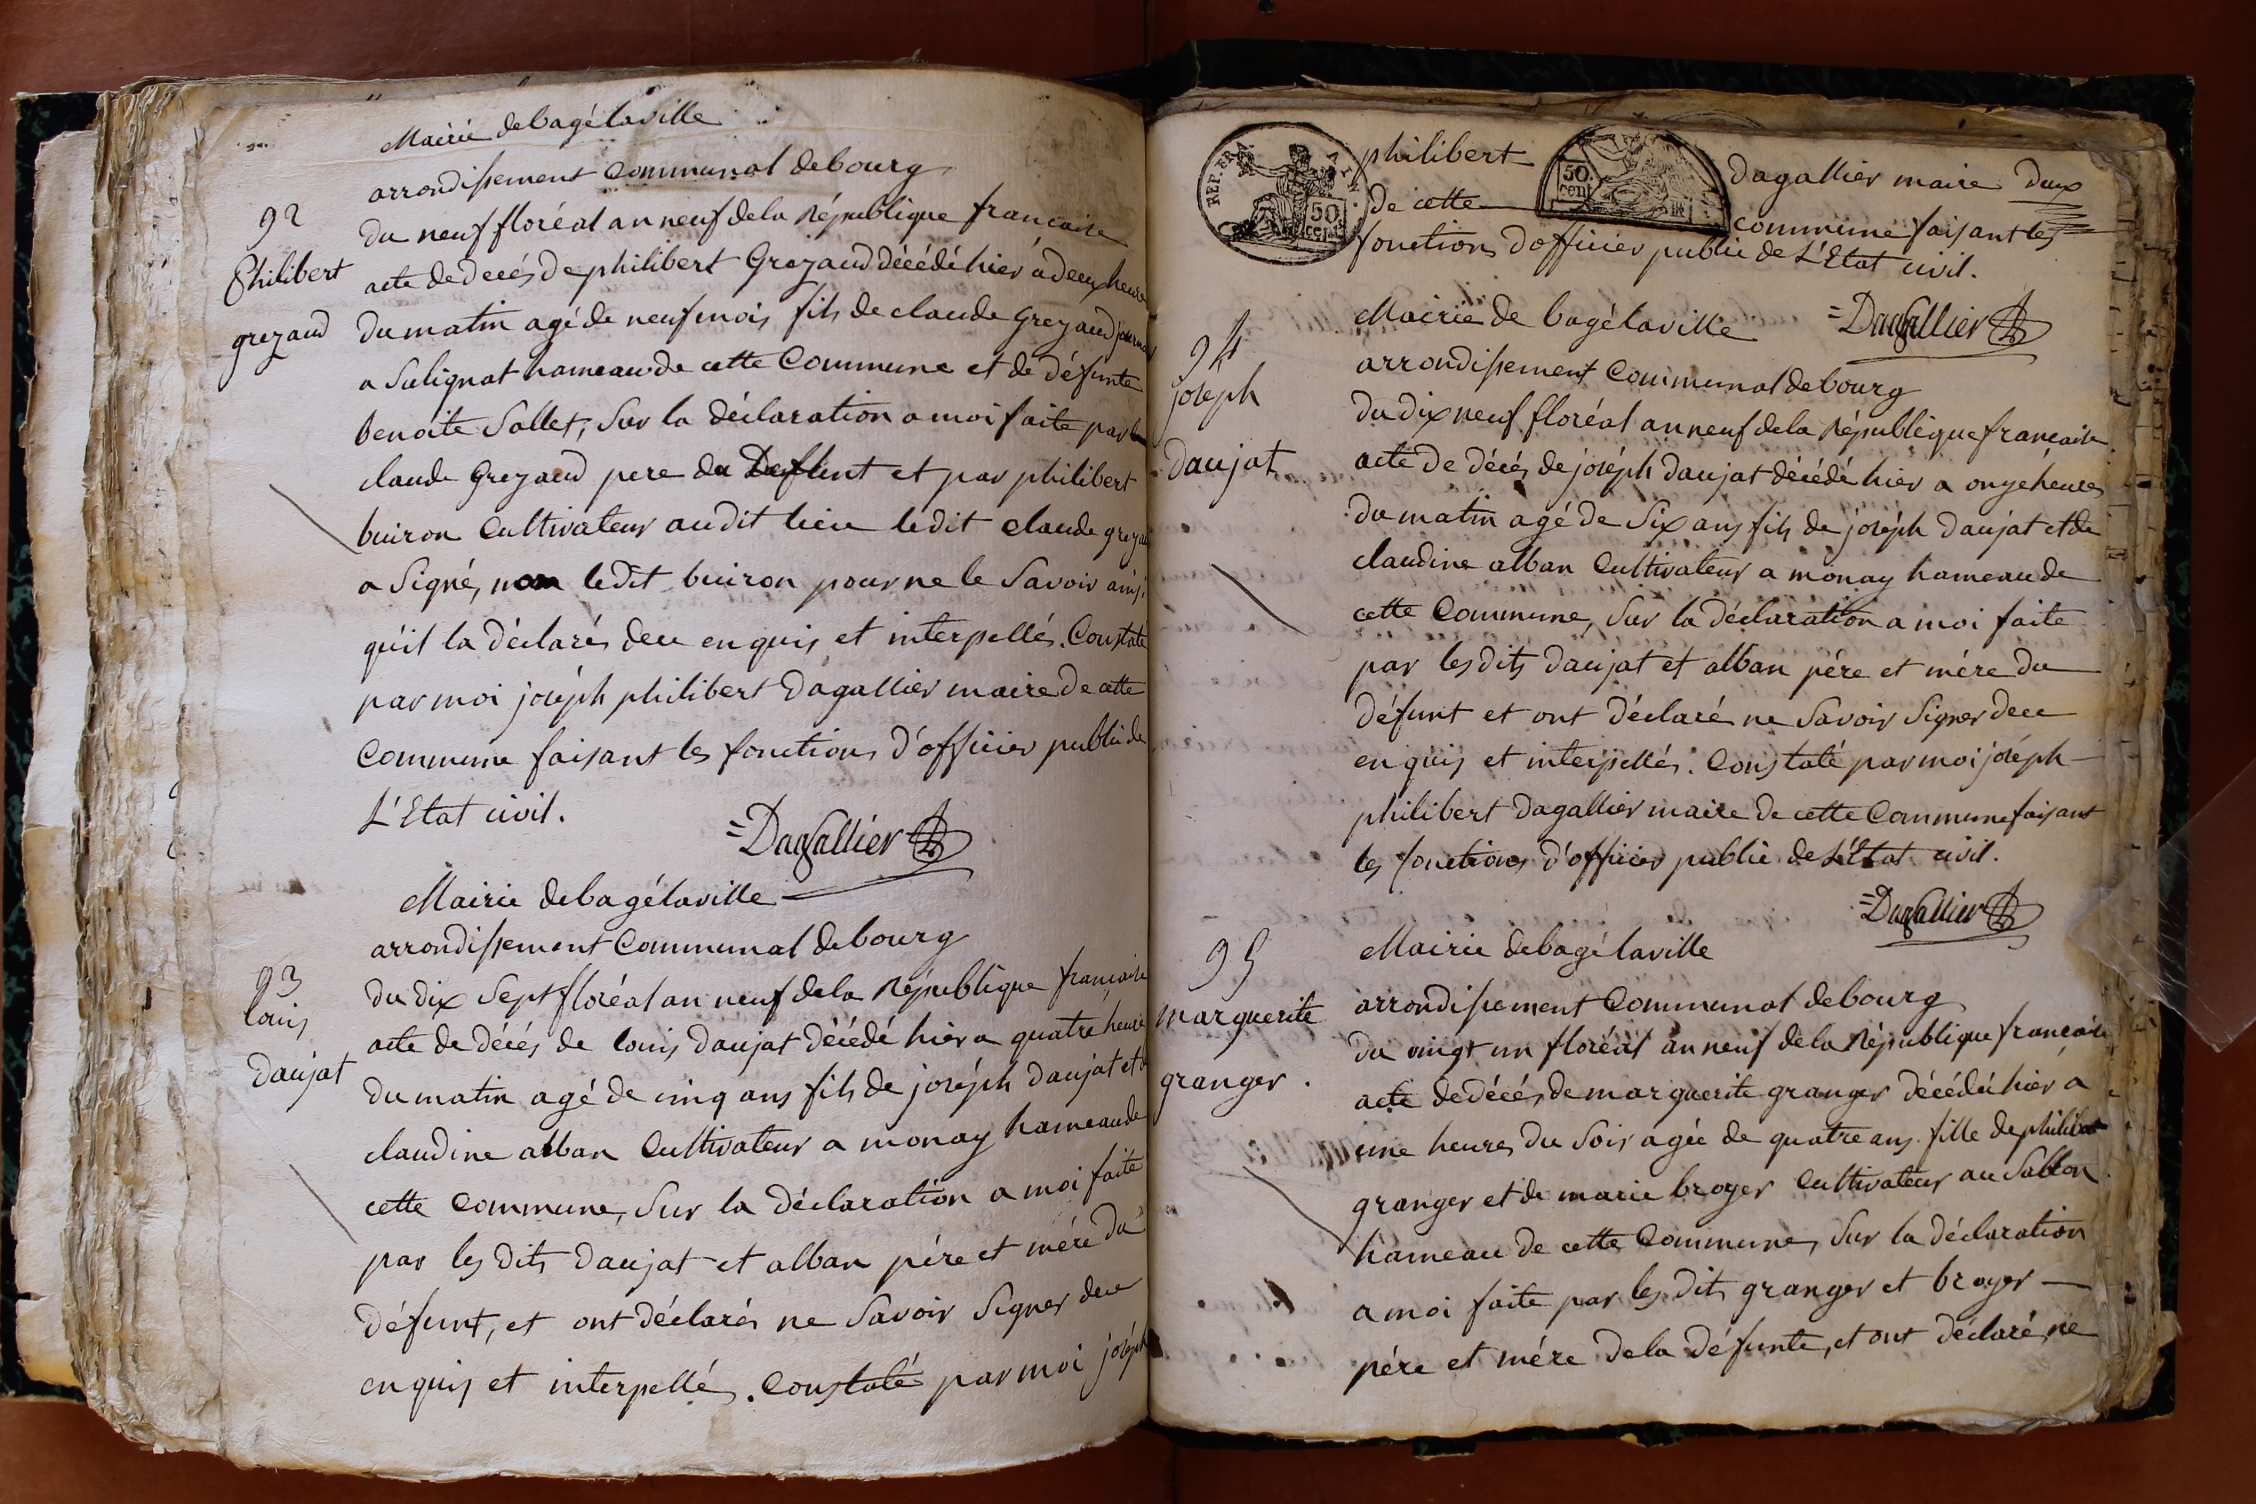 Mairie de bagé la ville
arrondissement Communal de bourg
92
Philibert
grezaud
du neuf floréal an neuf de la République francaise
acte de decés de philibert Grezaud décédé hier a deux heure
du matin agé de neuf mois fils de claude Grezaud
a Salignat hameau de cette Commune et de défunte
benoite Sallet, Sur la déclaration a moi faite par
claude Grezaud pere du Deffunt et par philibert
buiron Cultivateur audit lieu ledit claude
a Signé, non ledit buiron pour ne le Savoir
qu'il la déclarés deu enquis et interpellés. Constaté
par moi joséph philibert Dagallier maire de cette
Commune faisant les fonctions d'officier public de
L'Etat civil.
=Dagallier
Mairie de bagé la ville
arrondissement Communal de bourg
93
louis
daujat
du dix Sept floréal an neuf de la République française
acte de décés de louis daujat décédé hier a quatre heure
du matin agé de cinq ans fils de joséph daujat et
claudine alban Cultivateur a monay hameau de
cette Commune, Sur la déclaration a moi faite
par les dits daujat et alban pére et mére du
défunt, et ont déclarés ne Savoir Signer deu
enquis et interpellés. Constaté par moi joséph
REP. FRA
50 cent
philibert
50. cent
dagallier maire deux
de cette
commune faisant les
fonctions d'officier public de L'Etat civil.
=Dagallier
Mairie de bagé la ville
arrondissement Communal de bourg
94
joseph
daujat
du dix neuf floréal an neuf de la République francaise
acte de décés de joséph daujat décédé hier a onze heures
du matin agé de Six ans fils de joséph daujat et de
claudine alban Cultivateur a monay hameau de
cette Commune, Sur la déclaration a moi faite
par les dits daujat et alban pére et mére du
défunt et ont déclaré ne Savoir Signer deu
enquis et interpellés. Constaté par moi joséph
philibert dagallier maire de cette Commune faisant
les fonctions d'officier public de L'Etat civil.
=Dagallier
Mairie de bagé la ville
arrondissement Communal de bourg
95
marguerite
granger.
du vingt un floréal an neuf de la République francaise
acte de décés de marguerite granger décédé hier a
une heures du Soir agée de quatre ans. fille de philibert
granger et de marie broyer Cultivateur au Sablon
hameau de cette Commune, Sur la déclaration
a moi faite par les dits granger et broyer
pére et mére de la défunte, et ont déclaré ne